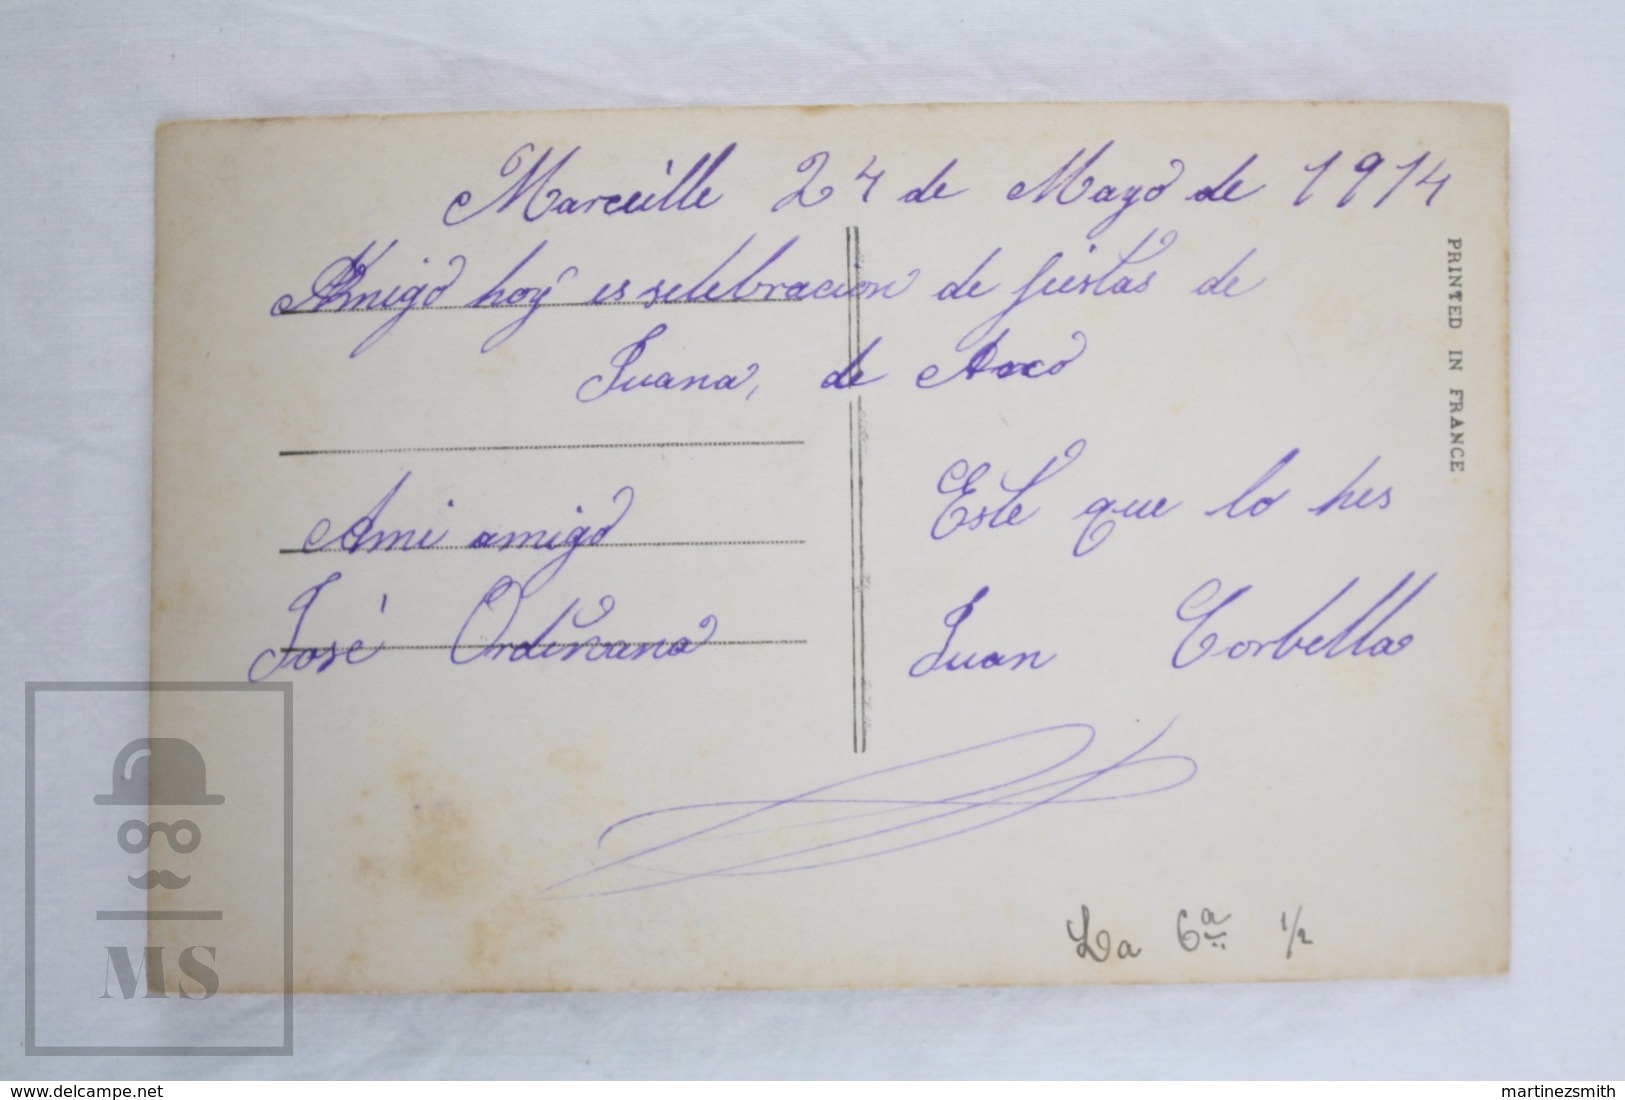 Marceille 24 de Mayo de 1914
Amigo hoy es selebracion de fiestas de
Juana, de Arco
Ami amigo
José Ordinana
Este que lo hes
Juan Corbella
La 6ª 1/2
PRINTED IN FRANCE
MS
www.delcampe.net
martinezsmith